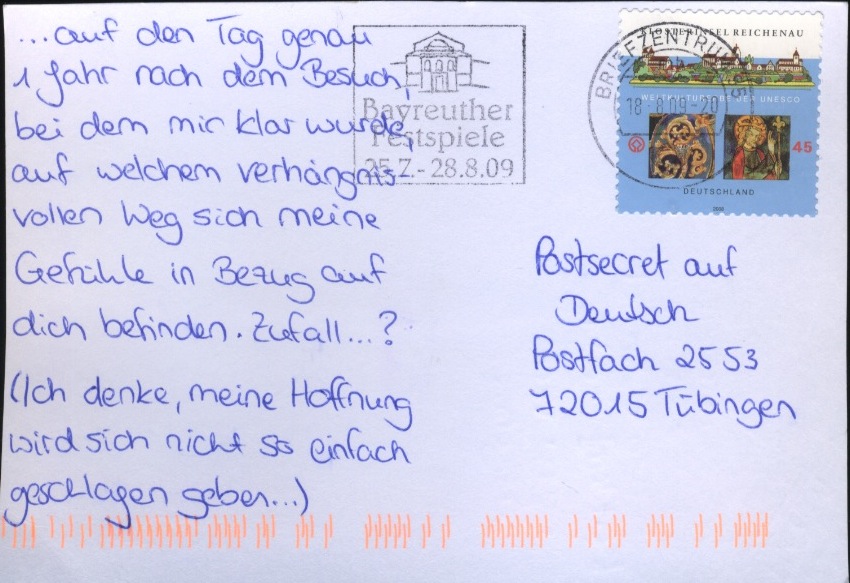 ...auf den Tag genau
1 Jahr nach dem Besuch,
bei dem mir klar wurde,
auf welchem verhängnis-
vollen Weg sich meine
Gefühle in Bezug auf
dich befinden. Zufall...?
(Ich denke, meine Hoffnung
wird sich nicht so einfach
geschlagen geben...)
Bayreuther
Festspiele
25.7. - 28.8.09
BRIEFZENTRUM
18.-8.09-20
KLOSTERINSEL REICHENAU
WELTKULTURERBE DER UNESCO
45
DEUTSCHLAND
2008
Postsecret auf
Deutsch
Postfach 2553
72015 Tübingen